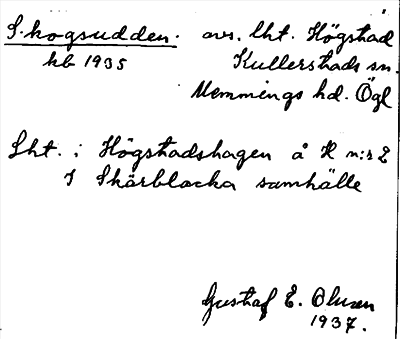 Skogsudden. avs. lht. Högstad
kb 1935 Kullerstads sn.
Memmings hd. Ögl
Lht. i Högstadshagen å K n:r 2
I Skärblacka samhälle
Gustaf E. Olsson
1937.